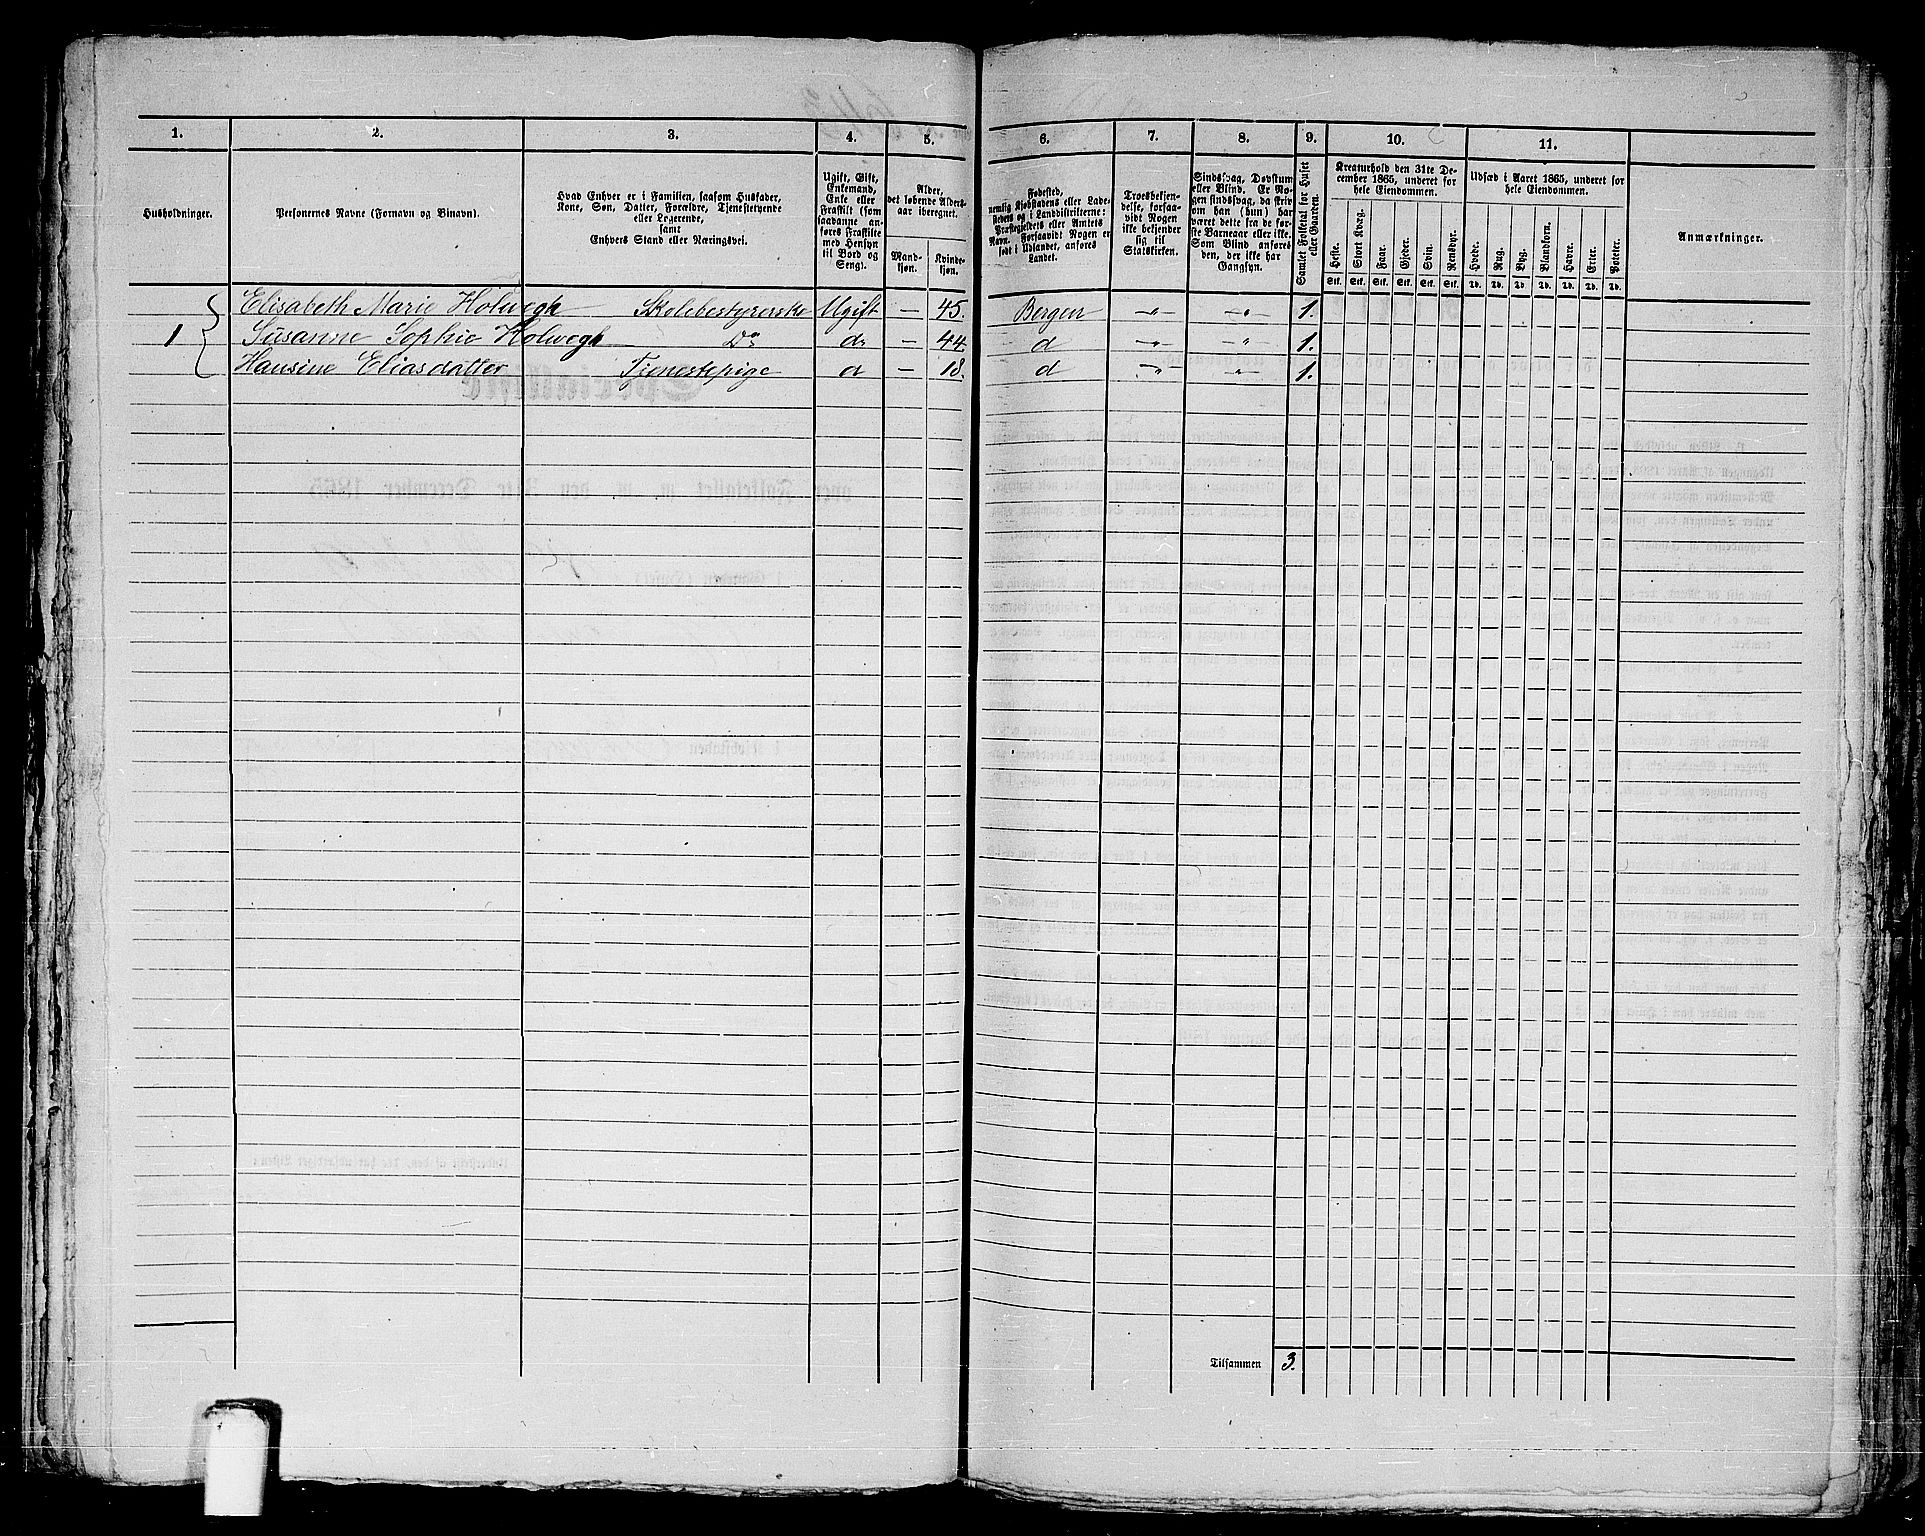 1. 2. 3. 4. 5. 6. 7. 8. 9. 10. 11.
Husholdninger.
Personernes Navne (Fornavn og Binavn).
Hvad Enhver er i Familien, saasom Husfader,
Kone, Søn, Datter, Forældre, Tjenestetyende
eller Logerende,
samt
Enhvers Stand eller Næringsvei.
Ugift, Gift,
Enkemand,
Enke eller
Fraskilt (som
saadanne anføres
Fraskilte
med Hensyn
til Bord og
Seng).
Alder,
det løbende Alders-
aar iberegnet.
Mand-
kjøn.
Kvinde-
kjøn.
Fødested,
nemlig Kjøbstadens eller Lade-
stedets og i Landdistrikterne:
Præstegjeldets eller Amtets
Navn. Forsaavidt Nogen er
født i Udlandet, anføres
Landet.
Troesbekjen-
delse, forsaa-
vidt Nogen
ikke bekjender
sig til
Statskirken.
Sindssvag, Døvstum
eller Blind. Er No-
gen sindssvag, da skriv
om han (hun) har
været dette fra de før-
ste Barneaar eller ikke.
Som Blind anføres
den, der ikke har
Gangsyn.
Samlet Folketal for Huset
eller Gaarden.
Kreaturhold den 31te De-
cember 1865, underet for
hele Eiendommen.
Heste. Stort Kvæg. Faar. Gjeder. Svin. Rensdyr.
Stk. Stk. Stk. Stk. Stk. Stk.
Udsæd i Aaret 1865, underet for
hele Eiendommen.
Hvede. Rug. Byg. Blandkorn. Havre. Erter. Poteter.
Td. Td. Td. Td. Td. Td. Td.
Anmærkninger.
Elisabeth Marie Holwegh Skolebestyrerske Ugift — 45. Bergen —"— —"— 1.
1 Susanne Sophie Holwegh Do do — 44. d —"— —"— 1.
Hansine Eliasdatter Tienestepige d — 18. d —"— —"— 1.
Tilsammen 3.